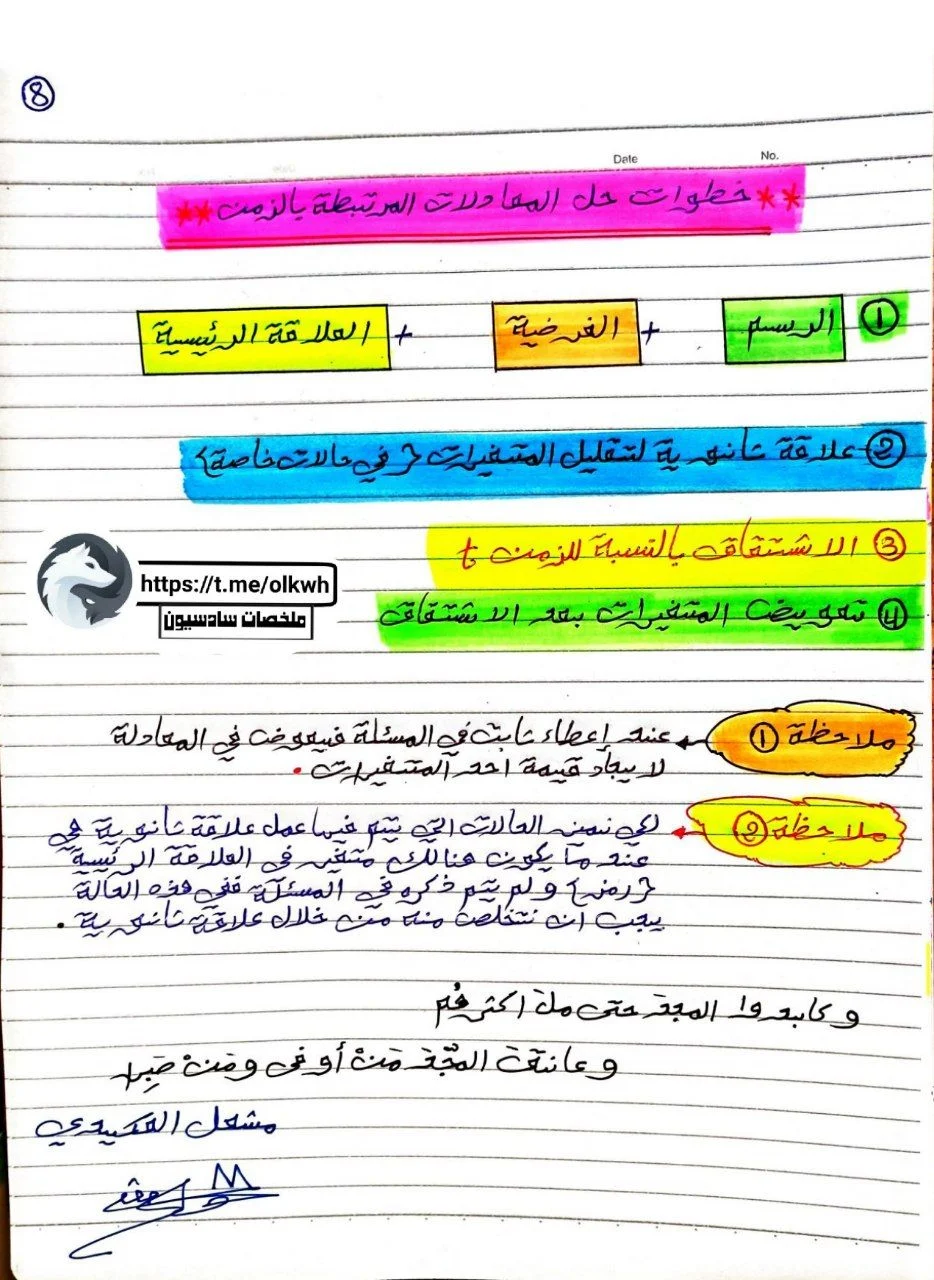 8
Date No.
** خطوات حل المعادلات المرتبطة بالزمن **
① الرسم + الفرضية + العلاقة الرئيسية
② علاقة ثانوية لتقليل المتغيرات {في حالات خاصة}
③ الاشتقاق بالنسبة للزمن t
https://t.me/olkwh
ملخصات سادسيون
④ تعويض المتغيرات بعد الاشتقاق
ملاحظة ① عند إعطاء ثابت في المسئلة فيعوض في المعادلة
لايجاد قيمة احد المتغيرات.
ملاحظة ② لكي نميز الحالات التي يتم فيها عمل علاقة ثانوية هي
عند ما يكون هنالك متغير في العلاقة الرئيسية
{رمز} و لم يتم ذكره في المسئلة ففي هذه الحالة
يجب ان نتخلص منه من خلال علاقة ثانوية.
و كابدوا المجد حتى مل اكثرهم
و عانق المجد من أوفى ومن صبرا
مشعل
M